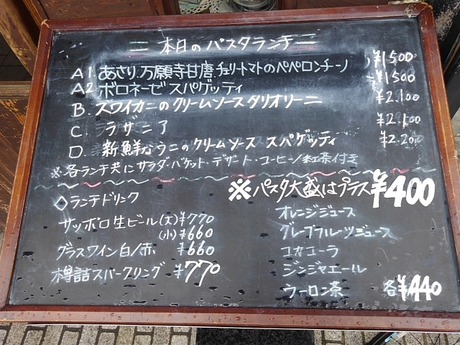 本日のパスタランチ
A1. あさり、万願寺甘唐、チェリートマトのペペロンチーノ ¥1500
A2 ボロネーゼ スパゲッティ ¥1500
B. ズワイガニのクリームソース タリオリーニ ¥2.100
C ラザニア ¥2.100
D. 新鮮なウニのクリームソース スパゲッティ ¥2.200
※各ランチ共にサラダ・バケット・デザート・コーヒー/紅茶付き
※パスタ大盛はプラス¥400
◇ランチドリンク
サッポロ生ビール(大)¥770
(小)¥660
グラスワイン白/赤 ¥660
樽詰スパークリング ¥770
オレンジジュース
グレープフルーツジュース
コカコーラ
ジンジャエール
ウーロン茶 各¥440